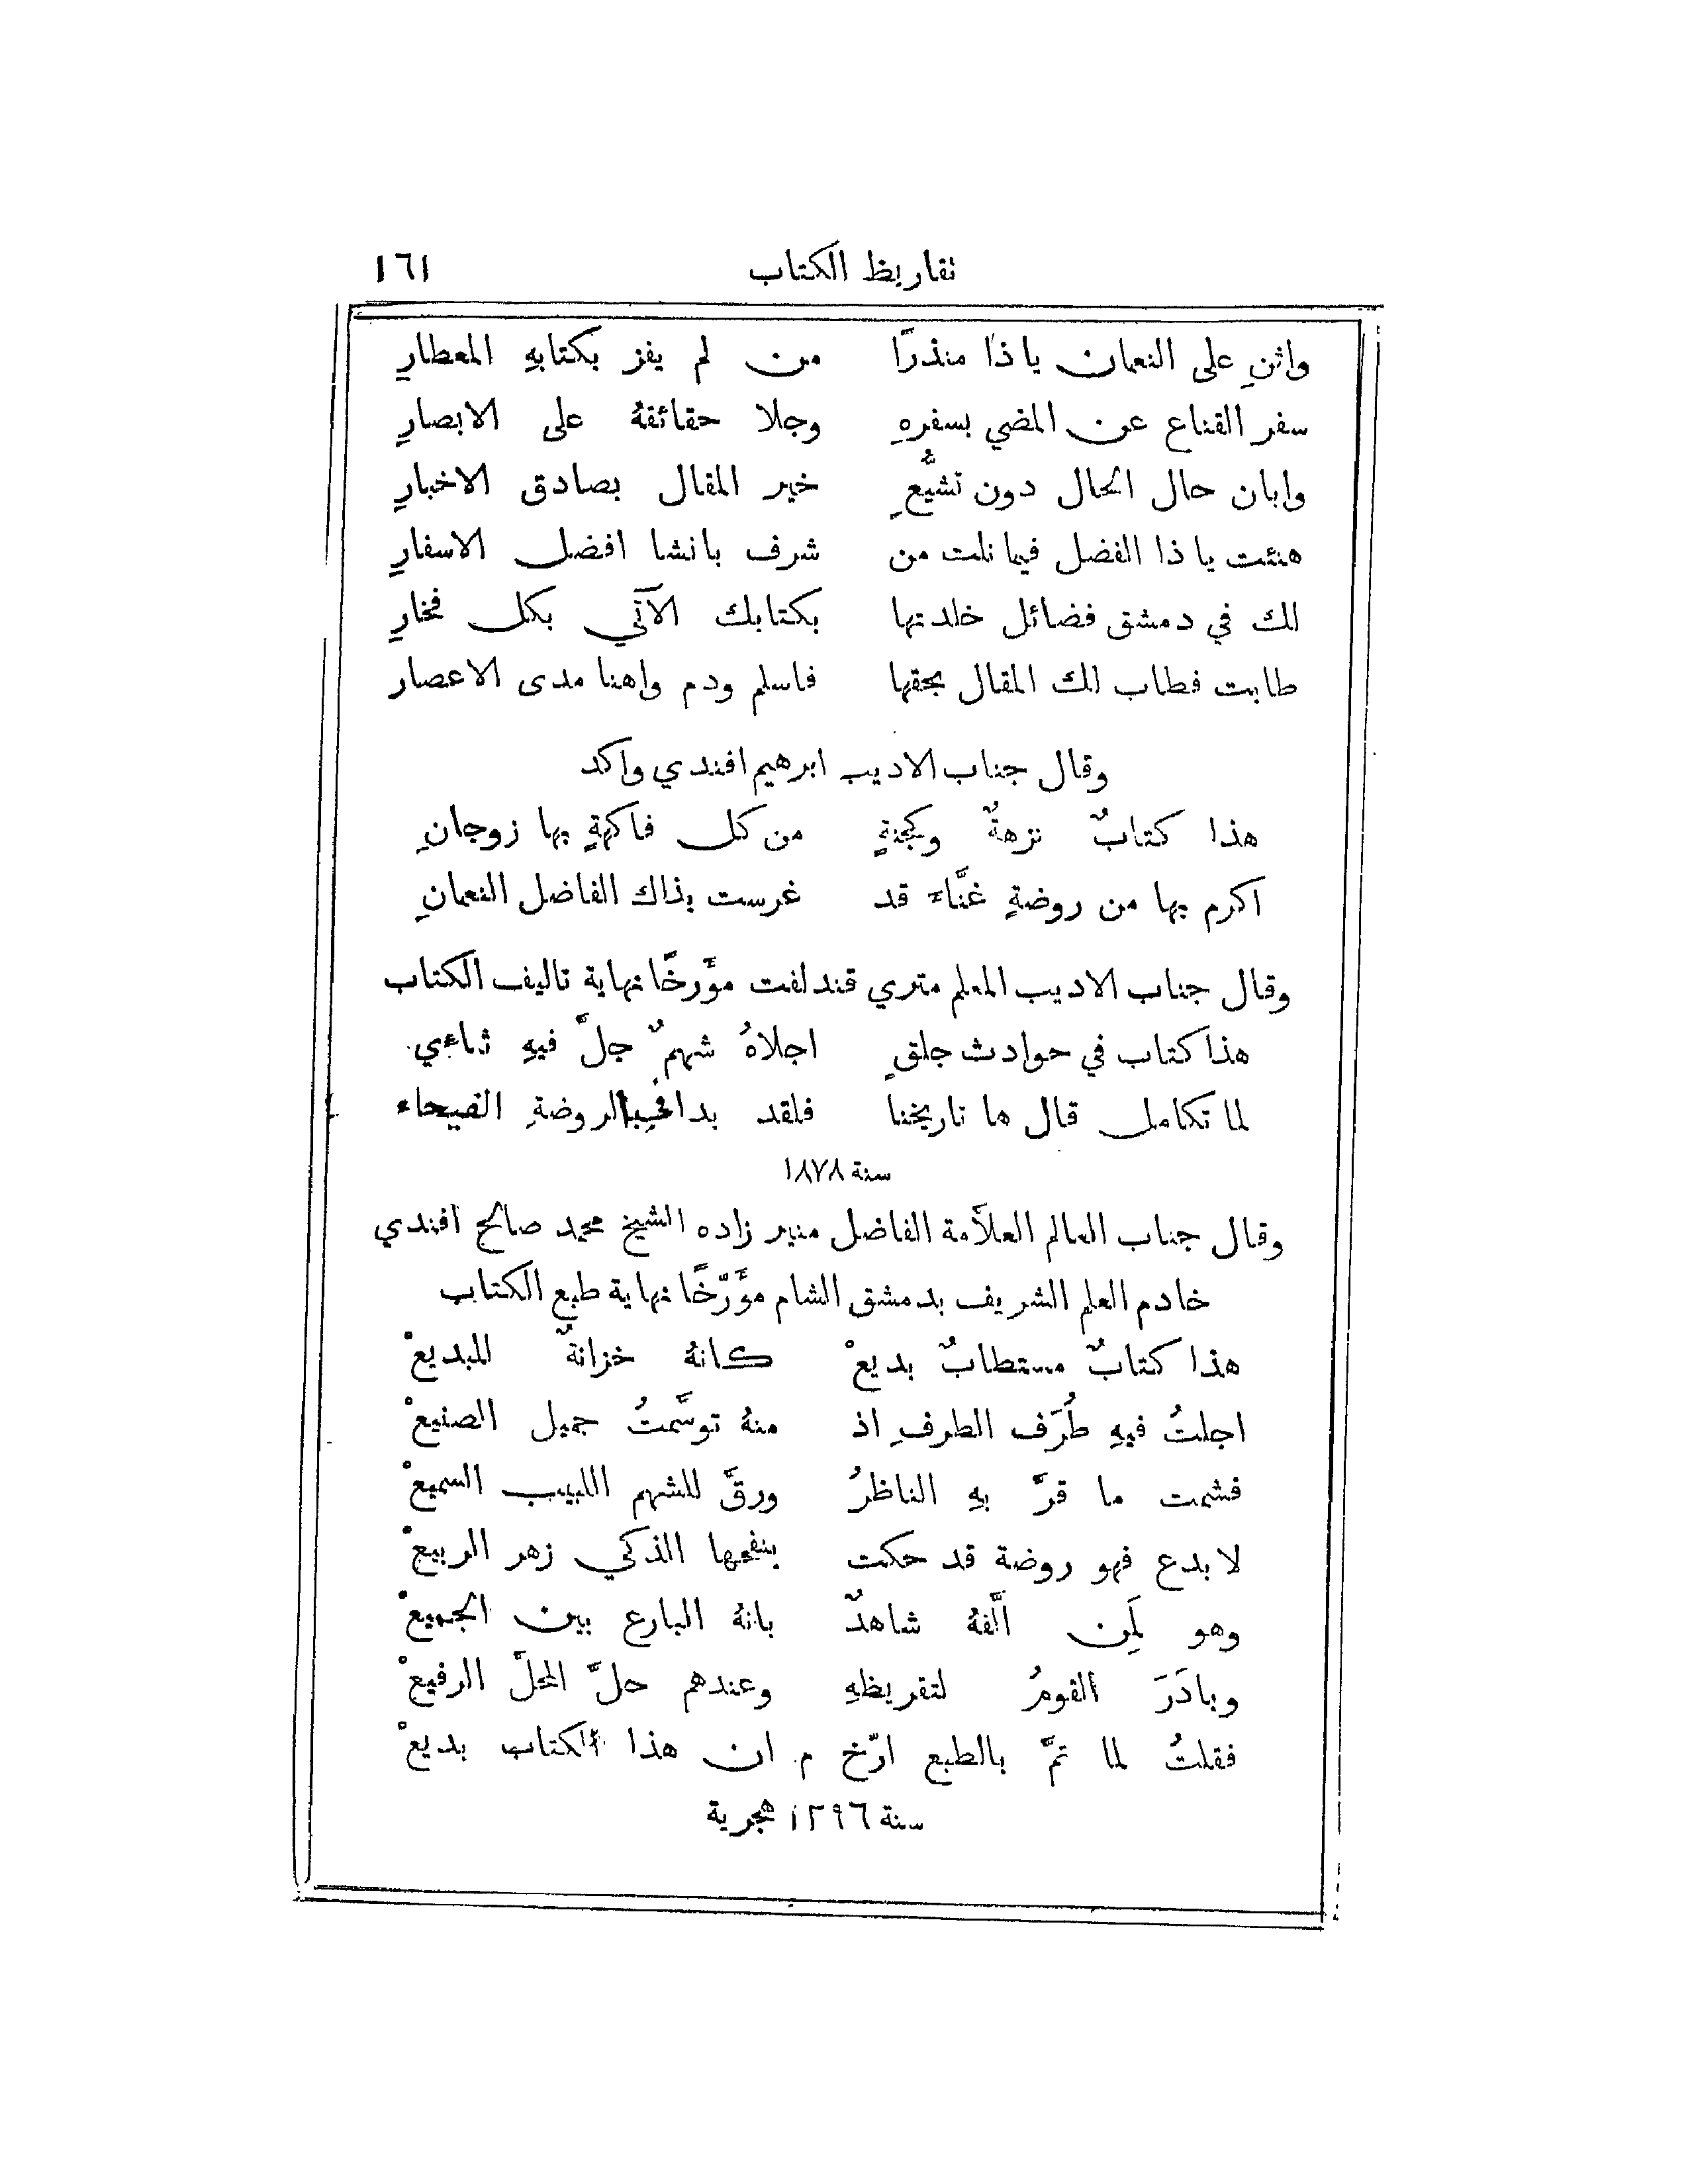 تقاريظ الكتاب ١٦١
واثنِ على النعمان يا ذا منذرًا من لم يفز بكتابهِ المعطارِ
سفر القناع عن المضي بسفرهِ وجلا حقائقهُ على الابصارِ
وابان حال الحال دون تشيُّعٍ خير المقال بصادق الاخبارِ
هنئت يا ذا الفضل فيما نلت من شرف بانشا افضل الاسفارِ
لك في دمشق فضائل خلدتها بكتابك الآتي بكل فخارِ
طابت فطاب لك المقال بحقها فاسلم ودم واهنا مدى الاعصار
وقال جناب الاديب ابرهيم افندي واكد
هذا كتابٌ نزهةٌ وكجنةٍ من كل فاكهةٍ بها زوجانِ
اكرم بها من روضةٍ غنَّاء قد غرست بذاك الفاضل النعمانِ
وقال جناب الاديب المعلم متري قندلفت مؤَرخًا نهاية تاليف الكتاب
هذا كتاب في حوادث جلقٍ اجلاهُ شهمٌ جلَّ فيهِ ثناءي
لما تكامل قال ها تاريخنا فلقد بدا الروضةِ الفيحاء
سنة ١٨٧٨
وقال جناب العالم العلاَّمة الفاضل منير زاده الشيخ محمد صالح افندي
خادم العلم الشريف بدمشق الشام مؤَرّخًا نهاية طبع الكتاب
هذا كتابٌ مستطابٌ بديعْ كانهُ خزانةٌ للبديعْ
اجلتُ فيهِ طُرَف الطرفِ اذ منهُ توسَّمتُ جميل الصنيعْ
فشمت ما قرَّ بهِ الناظرُ ورقَّ للشهم اللبيب السميعْ
لا بدع فهو روضة قد حكت بنفحها الذكي زهر الربيعْ
وهو لمَن الَّفهُ شاهدٌ بانهُ البارع بين الجميعْ
وبادَرَ القومُ لتقريظهِ وعندهم حلَّ المحلَّ الرفيعْ
فقلتُ لما تمَّ بالطبع ارّخ م ان هذا الكتاب بديعْ
سنة ١٢٩٦ هجرية